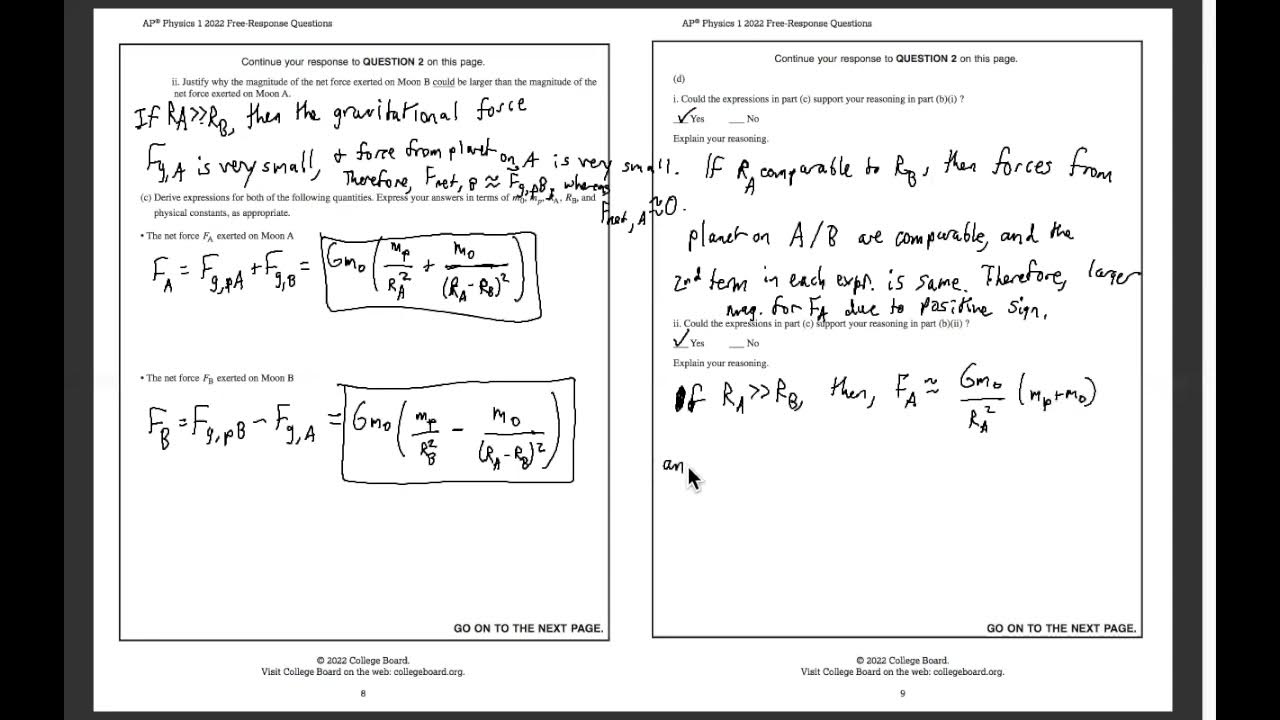 AP® Physics 1 2022 Free-Response Questions
Continue your response to QUESTION 2 on this page.
ii. Justify why the magnitude of the net force exerted on Moon B could be larger than the magnitude of the
net force exerted on Moon A.
If R_A >> R_B, then the gravitational force
F_g,A is very small, & force from planet on A is very small.
Therefore, F_net,B ≈ F_g,pB, whereas
F_net,A ≈ 0.
(c) Derive expressions for both of the following quantities. Express your answers in terms of m_0, m_p, R_A, R_B, and
physical constants, as appropriate.
• The net force F_A exerted on Moon A
F_A = F_g,pA + F_g,B = Gm_0 (m_p/R_A^2 + m_0/(R_A - R_B)^2)
• The net force F_B exerted on Moon B
F_B = F_g,pB - F_g,A = Gm_0 (m_p/R_B^2 - m_0/(R_A - R_B)^2)
GO ON TO THE NEXT PAGE.
© 2022 College Board.
Visit College Board on the web: collegeboard.org.
8
AP® Physics 1 2022 Free-Response Questions
Continue your response to QUESTION 2 on this page.
(d)
i. Could the expressions in part (c) support your reasoning in part (b)(i) ?
✓ Yes ___ No
Explain your reasoning.
If R_A comparable to R_B, then forces from
planet on A/B are comparable, and the
2nd term in each expr. is same. Therefore, larger
mag. for F_A due to positive sign.
ii. Could the expressions in part (c) support your reasoning in part (b)(ii) ?
✓ Yes ___ No
Explain your reasoning.
If R_A >> R_B, then, F_A ≈ Gm_0/R_A^2 (m_p + m_0)
an
GO ON TO THE NEXT PAGE.
© 2022 College Board.
Visit College Board on the web: collegeboard.org.
9